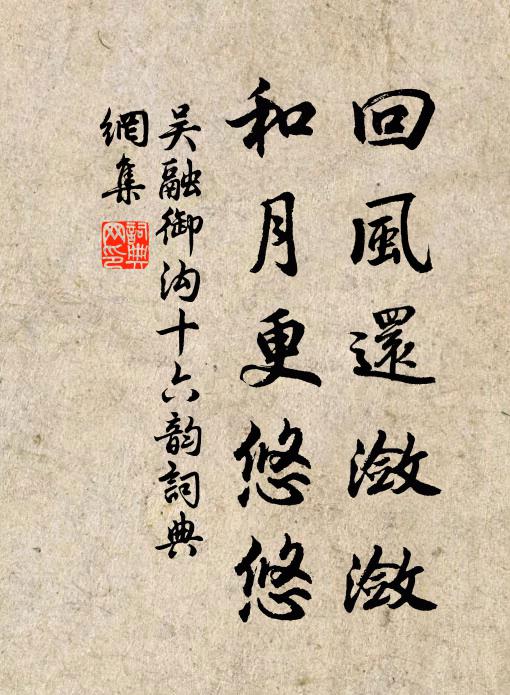 回風還瀲瀲
和月更悠悠
吴融御沟十六韵詞典
網集
詞典
网印